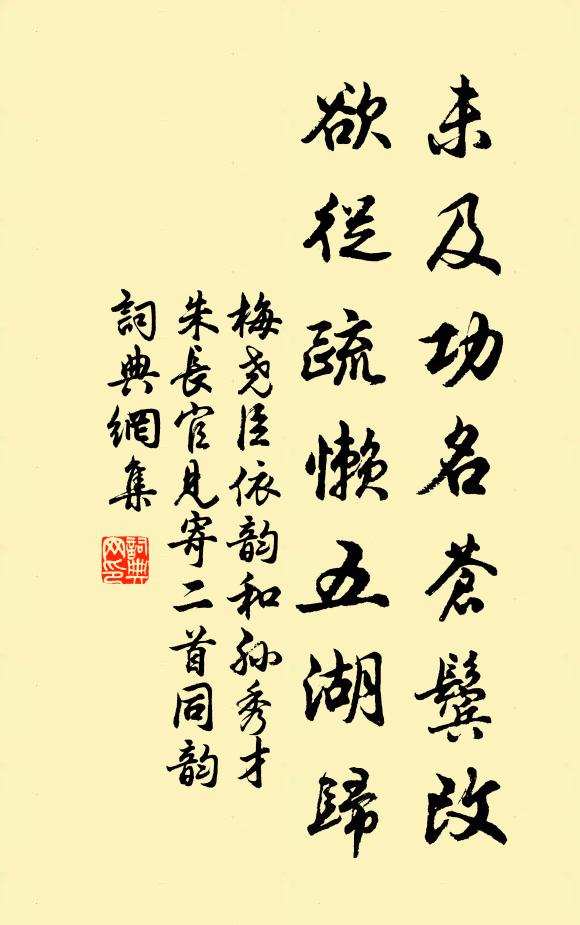 未及功名蒼鬢改
欲從疏懶五湖歸
梅堯臣依韵和孙秀才
朱長官見寄二首同韵
詞典網集
詞典網印